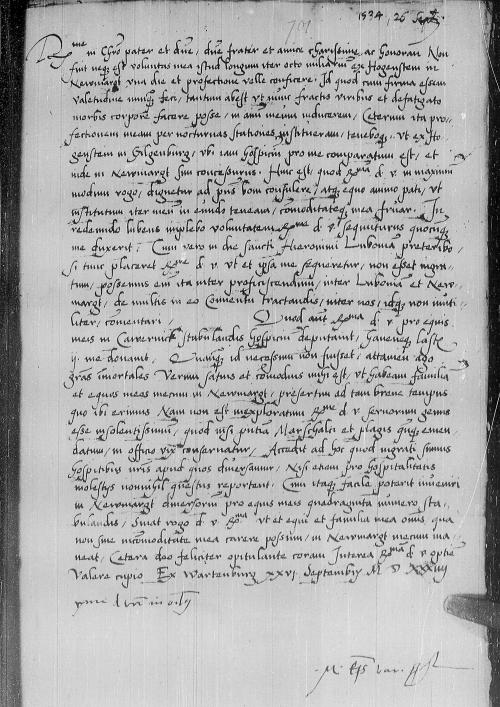 1534, 26 Sept
R me in Chro pater et dne, dne frater et amice charissime ac honorande Non
fuit neque est voluntas mea istud longum iter octo miliarium ex Hogenstein in
Newmargt una die et profectione velle conficere. Id quod cum firma essem
valetudine nunq feci, tantum abest ut nunc fractis viribus et defatigato
morbis corpore facere posse, in animum meum inducerem, Ceterum ita pro=
fectionem meam per nocturnas stationes institueram, ut ex Ho
genstein in Gilgenburg, ubi iam hospicium pro me comparatum est, et
inde in Newmargt sim concessurus. Hinc est, quod R ma d v. in maximum
modum rogo, dignetur ad pns boni consulere, atq equo animo pati, ut
institutum iter meum in eundo teneam, comoditateq mea fruar. In
redeundo lubens implebo voluntatem R me d v. sequuturus quocunq
me duxerit. Cum vero in die sancti Hieronimi Lubovia preteribo,
si tunc placeret R me d v. ut et ipsa me sequeretur, non esset
possemus em ita inter proficiscendum, inter Lubovia et New=
margt, de multis in eo Conventu tractandis, inter nos, idq non inuti=
liter, comentari, Quod aut R ma d v. pro equis
meis in Cawernick stabulandis hospicium deputarit,
me donavit, Quamq id necessum non fuisset, attamen ago
gras immortales Verum satius et comodius mihi est, ut habeam familia
et equos meos mecum in Newmargt, presertim ad tam breve tempus
quo ibi erimus Nam non est inexploratum R me d v. servorum genus
esse insolentissimum, quod nisi putia Marschalci et plagis quoq emen
datum, in officio vix conservatur. Accedit ad hoc quod ingrati simus
hospitibus nris apud quos diversamur, Nisi etiam pro hospitalitatis
molestijs nonnihil questus reportent. Cum itaq facile poterit inveniri
in Newmargt diversorium pro equis meis quadraginta numero sta=
bulandis, Sinat rogo d v R ma ut et equi et familia mea omis, qua
non sine incomoditate mea carere possum, in Newmargt mecum ma=
neat, Cetera deo feliciter opitulante coram Interea R ma d v. optime
Valere cupio Ex Wartenburg XXVI Septembris M D XXXIIIJ
M. Eps var.